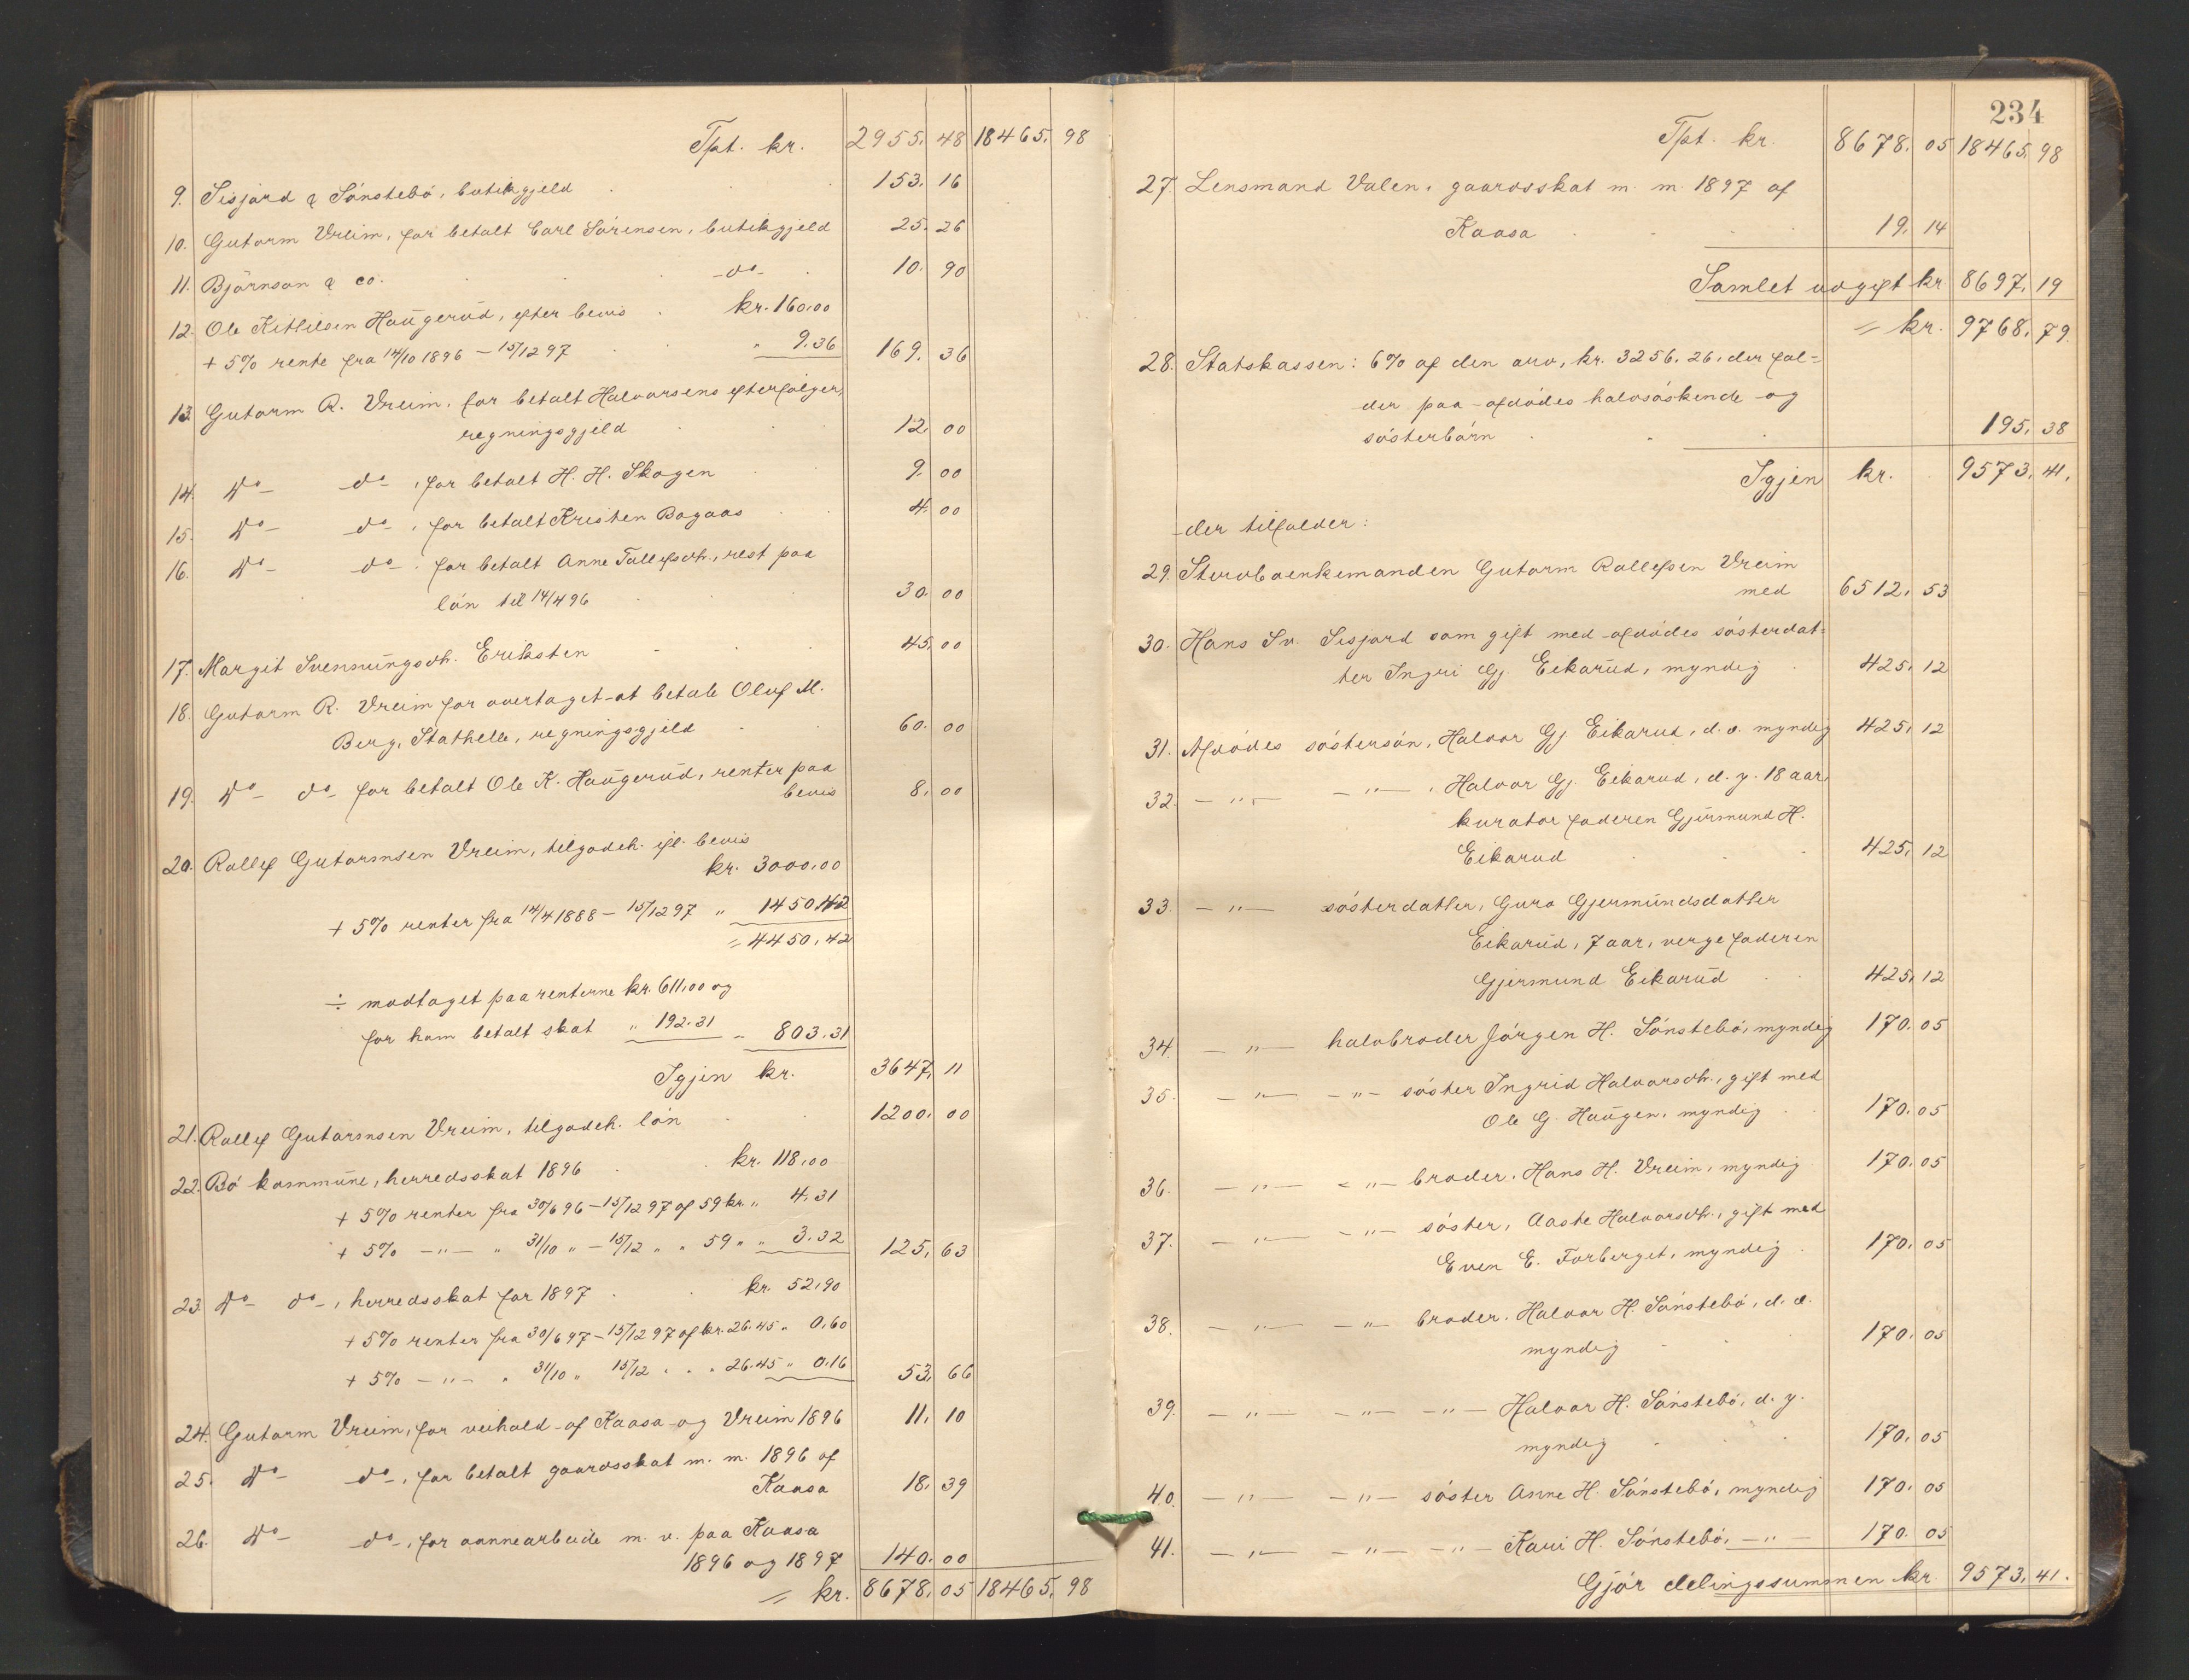 Tpt. kr. 2955. 48 18465. 98
9. Sisjord & Sönstebö, butikgjeld 153. 16
10. Gutorm Vreim, for betalt Carl Sörensen, butikgjeld 25. 26
11. Björnson & co. -do- 10. 90
12. Ole Kittilsen Haugerud, efter bevis kr. 160.00
+ 5% rente fra 14/10 1896 – 15/12 97 " 9.36 169. 36
13. Gutorm R. Vreim, for betalt Halvorsens efterfölger,
regningsgjeld 12. 00
14. Do- do-, for betalt H. H. Skogen 9. 00
15. Do- do-, for betalt Kristen Bogaas 4. 00
16. Do- do-, for betalt Anne Tollefsdtr., rest paa
lön til 14/4 96 30. 00
17. Margit Svennungsdtr. Eriksten 45. 00
18. Gutorm R. Vreim for overtaget at betale Oluf M.
Berg, Stathelle, regningsgjeld 60. 00
19. Do- do- for betalt Ole K. Haugerud, renter paa
bevis 8. 00
20. Rollef Gutormsen Vreim, tilgodeh. ifl. bevis
kr. 3000.00
+ 5% renter fra 14/4 1888 – 15/12 97 " 1450.42
= 4450.42
÷ modtaget paa renterne kr. 611.00 og
for ham betalt skat " 192.31 " 803.31
Igjen kr. 3647. 11
21. Rollef Gutormsen Vreim, tilgodeh. lön 1200. 00
22. Bö kommune, herredsskat 1896 kr. 118.00
+ 5% renter fra 30/6 96 – 15/12 97 af 59 kr. " 4.31
+ 5% –"– " 31/10 " – 15/12 " " 59 " " 3.32 125. 63
23. Do- do-, herredsskat for 1897 kr. 52.90
+ 5% renter fra 30/6 97 – 15/12 97 af kr. 26.45 " 0.60
+ 5% –"– " 31/10 " 15/12 " " " 26.45 " 0.16 53. 66
24. Gutorm Vreim, for veihold af Kaasa og Vreim 1896 11. 10
25. Do- do-, for betalt gaardsskat m. m. 1896 af
Kaasa 18. 39
26. Do- do-, for onnearbeide m. v. paa Kaasa
1896 og 1897 140. 00
= kr. 8678. 05 18465. 98
234
Tpt. kr. 8678. 05 18465. 98
27. Lensmand Valen, gaardsskat m. m. 1897 af
Kaasa 19. 14
Samlet udgift kr 8697. 19
= kr. 9768. 79.
28. Statskassen: 6% af den arv, kr. 3256.26, der fal=
der paa afdödes halvsöskende og
sösterbörn 195. 38
Igjen kr. 9573. 41.
der tilfalder:
29. Stervboenkemanden Gutorm Rollefsen Vreim
med 6512. 53
30. Hans Sv. Sisjord som gift med afdödes sösterdat=
ter Ingri Gj. Eikarud, myndig 425. 12
31. Afdödes söstersön, Halvor Gj. Eikarud, d. e. myndig 425. 12
32. –"– –"–, Halvor Gj. Eikarud, d. y. 18 aar,
kurator faderen Gjermund H.
Eikarud 425. 12
33. –"– sösterdatter, Guro Gjermundsdatter
Eikarud, 7 aar, verge faderen
Gjermund Eikarud 425. 12
34. –"– halvbroder Jörgen H. Sönstebö, myndig 170. 05
35. –"– –"– söster Ingrid Halvorsdtr., gift med
Ole G. Haugen, myndig 170. 05
36. –"– –"– broder, Hans H. Vreim, myndig 170. 05
37. –"– –"– söster, Aaste Halvorsdtr., gift med
Even E. Forberget, myndig 170. 05
38. –"– –"– broder, Halvor H. Sönstebö, d. e.
myndig 170. 05
39. –"– –"– –"– Halvor H. Sönstebö, d. y.
myndig 170. 05
40. –"– –"– söster Anne H. Sönstebö, myndig 170. 05
41. –"– –"– –"– Kari H. Sönstebö, –"– 170. 05
Gjör delingssummen kr. 9573. 41.